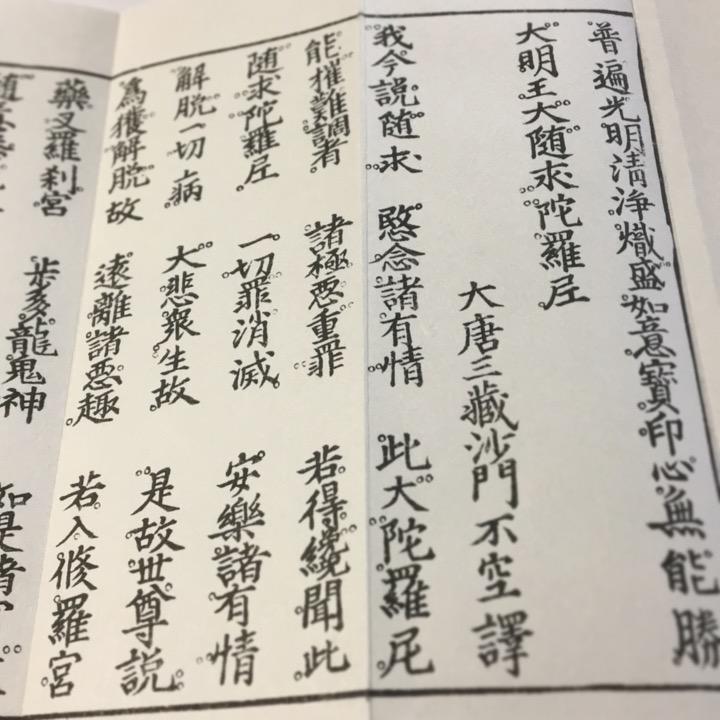 普遍光明清淨熾盛如意寶印心無能勝
大明王大随求陀羅尼
大唐三藏沙門不空譯
我今説随求　愍念諸有情　此大陀羅尼
能摧難調者　諸極悪重罪　若得纔聞此
随求陀羅尼　一切罪消滅　安樂諸有情
解脱一切病　大悲衆生故　是故世尊説
為獲解脱故　遠離諸悪趣　若入脩羅宮
藥叉羅刹宮　歩多龍鬼神　如是諸